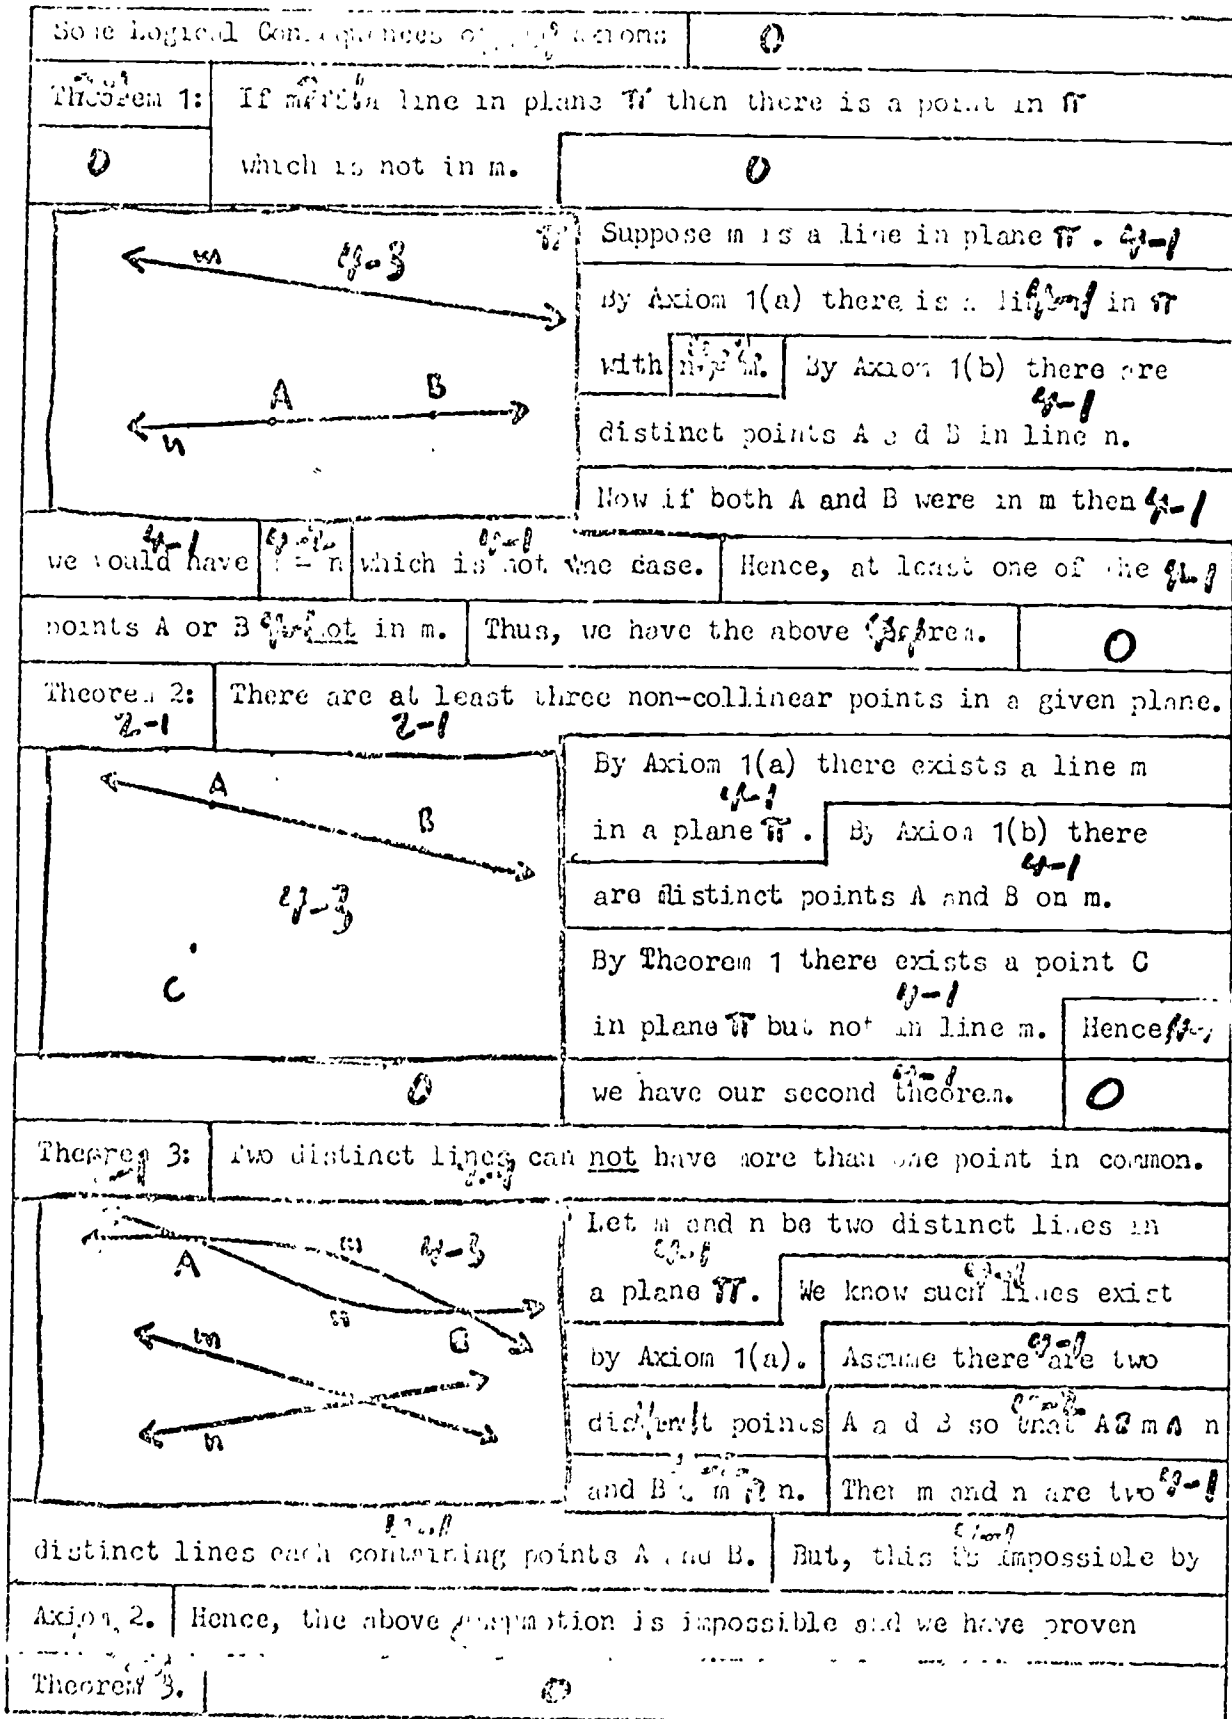 Some Logical Consequences of axioms 0
Theorem 1: If m is a line in plane π then there is a point in π
0 which is not in m. 0
m eg-3 π
A B
n
Suppose m is a line in plane π. eg-1
By Axiom 1(a) there is a line in π
with n ≠ m. By Axiom 1(b) there are
eg-1
distinct points A and B in line n.
Now if both A and B were in m then eg-1
eg-1 eg-1
we would have = n which is not the case. Hence, at least one of the
points A or B not in m. Thus, we have the above theorem. 0
Theorem 2: There are at least three non-collinear points in a given plane.
2-1 2-1
A
B
eg-3
C
By Axiom 1(a) there exists a line m
eg-1
in a plane π. By Axiom 1(b) there
eg-1
are distinct points A and B on m.
By Theorem 1 there exists a point C
eg-1
in plane π but not in line m. Hence
eg-1
0 we have our second theorem. 0
Theorem 3: Two distinct lines can not have more than one point in common.
A m eg-3
n
m
n
Let m and n be two distinct lines in
a plane π. We know such lines exist
eg-1
by Axiom 1(a). Assume there are two
distinct points A and B so that A ∈ m ∩ n
and B ∈ m ∩ n. Then m and n are two eg-1
distinct lines each containing points A and B. But, this is impossible by
Axiom 2. Hence, the above assumption is impossible and we have proven
Theorem 3. 0